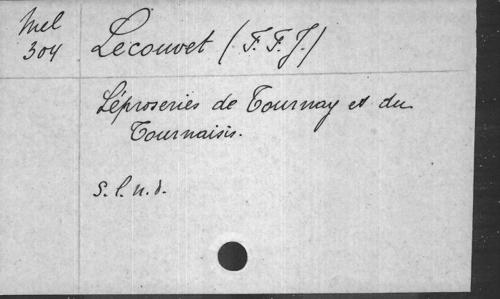 Mel
304
Lecouvet (F. F. J.)
Léproseries de Tournay et du
Tournaisis.
S. l. n. d.